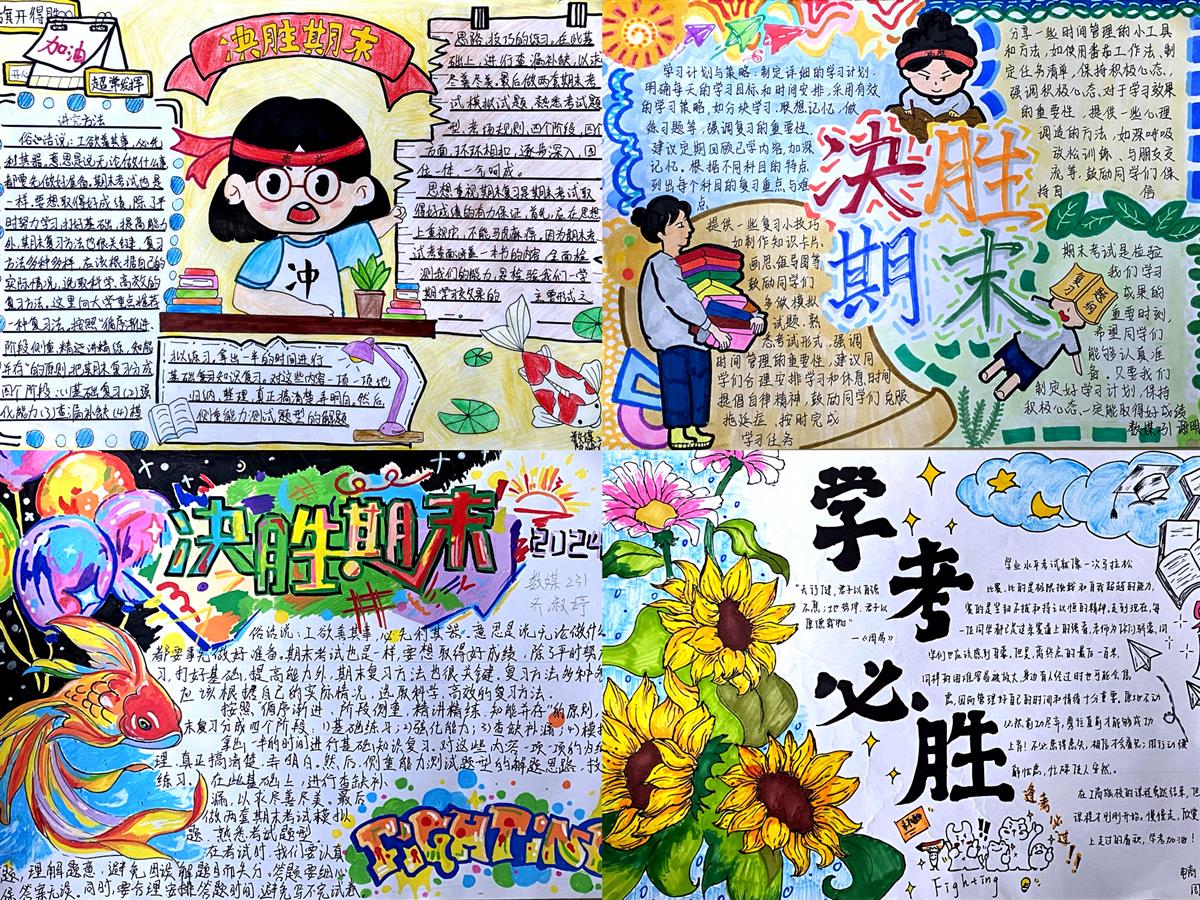 旗开得胜
加油
超常发挥
决胜期末
讲究方法
俗话说：工欲善其事，必先
利其器。意思是说无论做什么事
都要先做好准备。期末考试也是
一样，要想取得好成绩，除了平
时努力学习，打好基础，提高能力
外，期末复习方法也很关键。复习
方法多种多样，应该根据自己的
实际情况，选取科学、高效的
复习方法。这里向大学重点推荐
一种复习法，按照"循序渐进、
阶段侧重，精讲精练，知能
并存"的原则，把期末复习分成
四个阶段：(1)基础复习(2)强
化能力(3)查漏补缺(4)模
拟练习，拿出一半的时间进行
基础知识复习。对这些内容一项一项地
归纳、整理，真正搞清楚弄明白。然后，
侧重能力测试题型的解题
思路，技巧的练习。在此基
础上，进行查漏补缺，以求
尽善尽美。最后做两套期末考
试模拟试题，熟悉考试题
型，考场规则。四个阶段，四个
方面，环环相扣，逐步深入，固
位一体，一气呵成。
思想重视期末复习是期末考试取
得好成绩的有力保证。首先，应在思想
上重视它，不能马虎麻痹，因为期末考
试考查涵盖一本书的内容，全面检
测我们的能力，是检验我们一学
期学习效果的
主要形式之
冲
学习计划与策略：制定详细的学习计划，
明确每天的学习目标和时间安排，采用有效
的学习策略，如分块学习、联想记忆、做
练习题等，强调复习的重要性，
建议定期回顾已学内容，加深
记忆。根据不同科目的特点，
列出每个科目的复习重点与难
点
分享一些时间管理的小工具
和方法，如使用番茄工作法、制
定任务清单，保持积极心态，
强调积极心态，对于学习效果
的重要性，提供一些心理
调适的方法，如深呼吸
放松训练、与朋友交
流等，鼓励同学们保
持自信
决胜
期末
提供一些复习小技巧
如制作知识卡片、
画思维导图等
鼓励同学们
多做模拟
试题，熟
悉考试形式，强调
时间管理的重要性，建议同
学们合理安排学习和休息时间
提倡自律精神，鼓励同学们克服
拖延症，按时完成
学习任务
期末考试是检验
我们学习
成果的
重要时刻，
希望同学们
能够认真准
备，只要我们
制定好学习计划，保持
积极心态，一定能取得好成绩
数媒231
决胜期末
2024
数媒231
俗话说：工欲善其事，必先利其器。意思是说无论做什么
都要事先做好准备。期末考试也是一样，要想取得好成绩，除了平时努力
习，打好基础，提高能力外，期末复习方法也很关键。复习方法多种多
应该根据自己的实际情况，选取科学、高效的复习方法。
按照"循序渐进、阶段侧重，精讲精练，知能并存"的原则，
末复习分成四个阶段：1)基础练习；2)强化能力；3)查缺补漏；4)模拟
拿出一半的时间进行基础知识复习。对这些内容一项一项的归纳
理，真正搞清楚，弄明白。然后，侧重能力测试题型的解题思路，技
练习。在此基础上，进行查缺补
漏，以求尽善尽美。最后
做两套期末考试模拟
题，熟悉考试题型
在考试时，我们要认真
题，理解题意，避免因误解题目而失分，答题要细心
保答案无误。同时，要合理安排答题时间，避免写不完试卷
FIGHTING
学考必胜
"天行健，君子以自强
不息；地势坤，君子以
厚德载物"
—《周易》
学业水平考试就像一次马拉松
比赛，比的是
上岸！不必焦
在工商旅校的课程虽然结束，但
逢考必过!!
Fighting